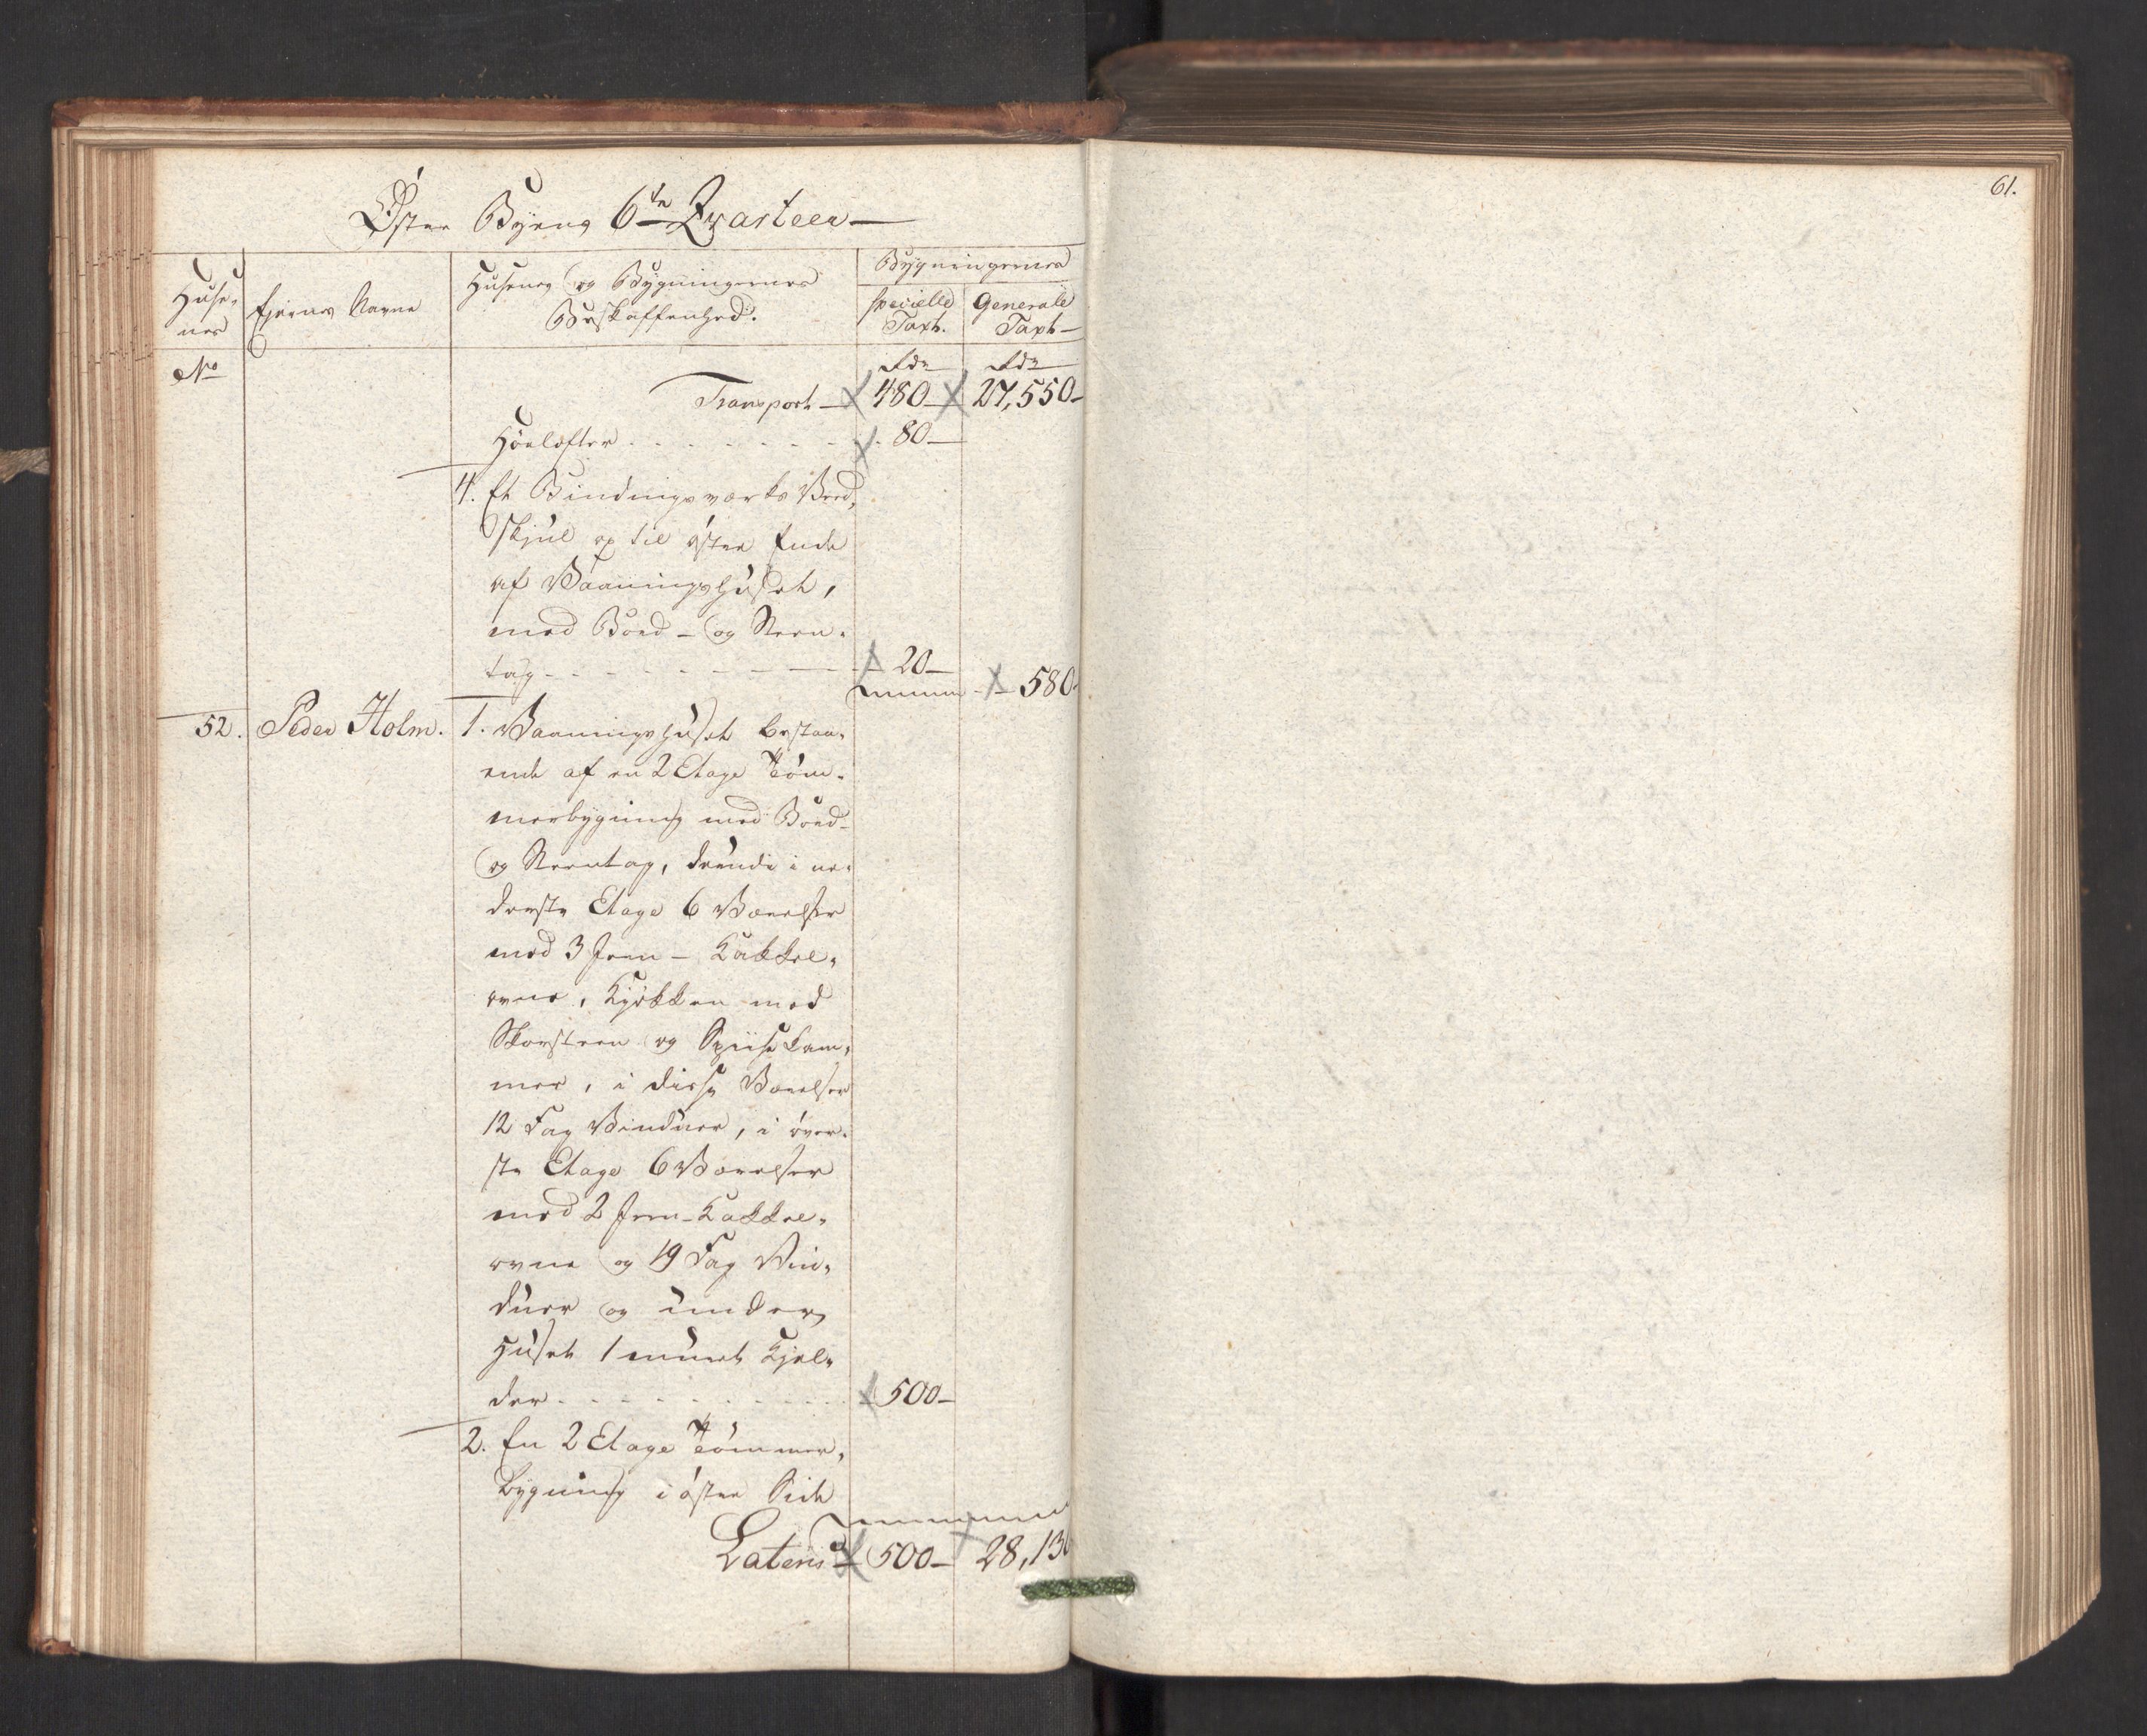 61.
Øster Byens 6te Qvarteer
Huse-
nes
Ejernes Navne
Husenes og Bygningernes
Beskaffenhed.
Bygningernes
specielle
Taxt.
Generale
Taxt
No
Rdr
Rdr
Transport 480 27,550
Høelofter 80
4. Et Bindingsværks Veed-
skjul op til øster Ende
af Vaaningshuset,
med Bord- og Steen-
tag 20
580
52. Peder Holm. 1. Vaaningshuset bestaa-
ende af en 2 Etage Töm-
merbygning med Bord-
og Steentag, derudi i ne-
derste Etage 6 Værelser
med 3 Jern-Kakkel-
ovne, Kjøkken med
Skorsteen og Spiisekam-
mer, i disse Værelser
12 Fag Vinduer, i øver-
ste Etage 6 Værelser
med 2 Jern-Kakkel-
ovne og 19 Fag Vin-
duer og under
Huset 1 muret Kjel-
der 500
2. En 2 Etage Tömmer-
bygning i øster Side
Lateris 500 28,130